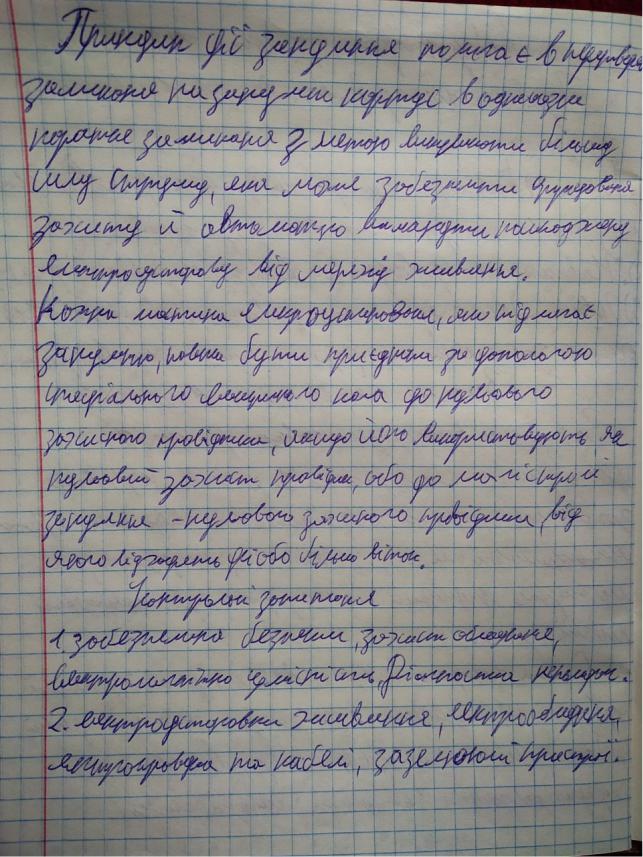 Принцип дії занулення полягає в перетворен
замикання на занулений корпус в однофазне
коротке замикання з метою викликати більшу
силу струму, яка може забезпечити спрацювання
захисту й автоматично вимкнути пошкоджену
електроустановку від мережі живлення.
Кожна частина електроустановки, яка підлягає
зануленню, повина бути приєднана за допомогою
спеціального окремого кола до нульового
захисного провідника, якщо його використовують як
нульовий захист провідник, або до магістралі
занулення - нульового захисного провідника, від
якого відходять дві або більше віток.
Контрольні запитання
1. забезпечення безпеки, захист обладнання,
електромагнітна сумісність, Діагностика неполадок.
2. електроустановки живлення, електрообладнання,
електропроводка та кабелі, заземлюючі пристрої.